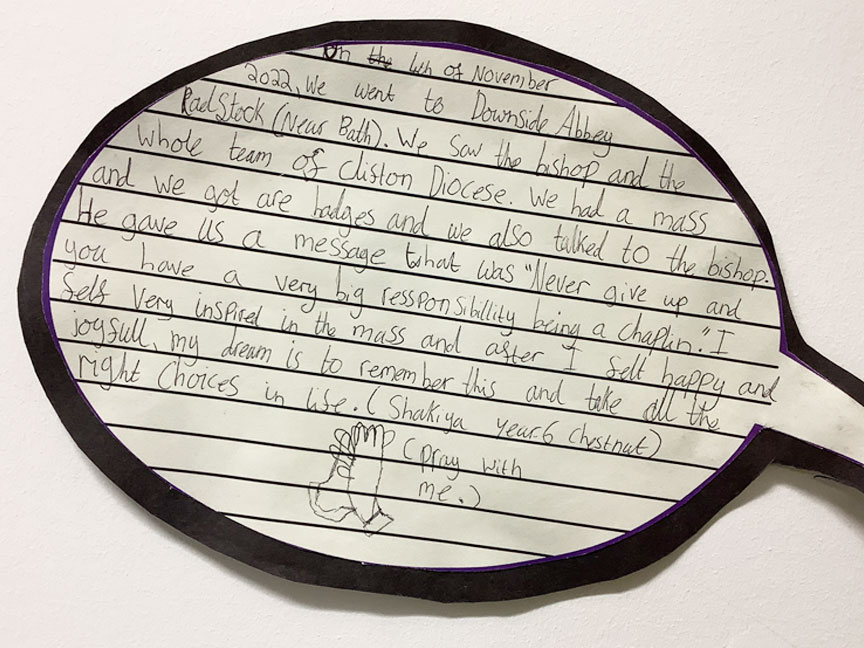 On the 4th of November
2022, We went to Downside Abbey
RadStock (Near Bath). We saw the bishop and the
whole team of Clifton Diocese. We had a mass
and we got are badges and we also talked to the bishop.
He gave us a message what was "Never give up and
you have a very big ressponsibillity being a chaplin." I
felt very inspired in the mass and after I felt happy and
joyfull, my dream is to remember this and take all the
right Choices in life. (Shakiya year 6 chestnut)
(pray with
me.)